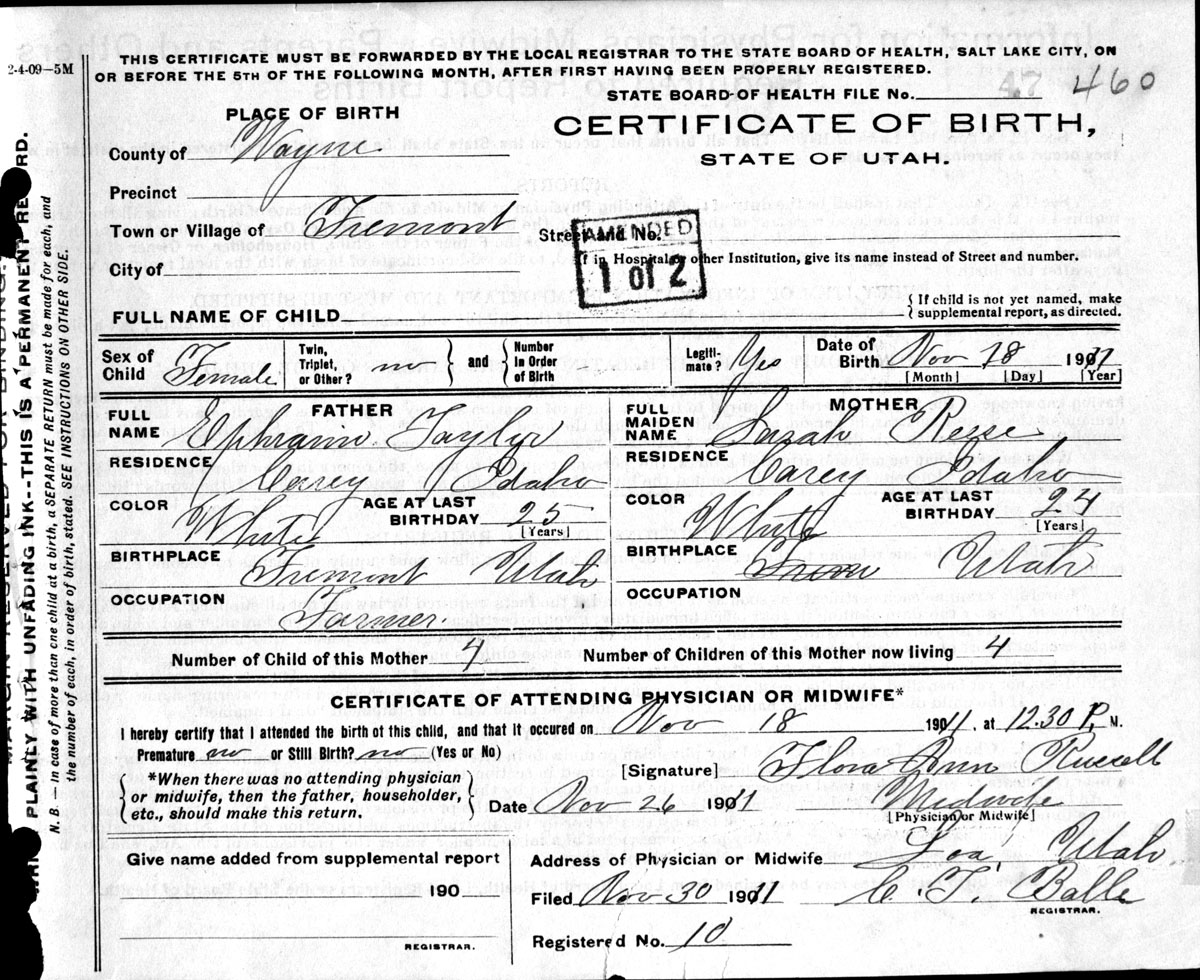 THIS CERTIFICATE MUST BE FORWARDED BY THE LOCAL REGISTRAR TO THE STATE BOARD OF HEALTH, SALT LAKE CITY, ON
2-4-09—5M
OR BEFORE THE 5TH OF THE FOLLOWING MONTH, AFTER FIRST HAVING BEEN PROPERLY REGISTERED.
STATE BOARD OF HEALTH FILE No. 47 460
PLACE OF BIRTH
CERTIFICATE OF BIRTH,
County of Wayne
STATE OF UTAH.
Precinct
Town or Village of Fremont Street and No.
AMENDED
1 of 2
City of If in Hospital or other Institution, give its name instead of Street and number.
FULL NAME OF CHILD {If child is not yet named, make
supplemental report, as directed.
Sex of Child Female Twin, Triplet, or Other? no } and { Number in Order of Birth Legiti-mate? Yes Date of Birth Nov 18 1911
[Month] [Day] [Year]
FATHER MOTHER
FULL NAME Ephraim Taylor FULL MAIDEN NAME Sarah Reese
RESIDENCE Carey Idaho RESIDENCE Carey Idaho
COLOR White AGE AT LAST BIRTHDAY 25 [Years] COLOR White AGE AT LAST BIRTHDAY 24 [Years]
BIRTHPLACE Fremont Utah BIRTHPLACE Utah
OCCUPATION Farmer. OCCUPATION
Number of Child of this Mother 4 Number of Children of this Mother now living 4
CERTIFICATE OF ATTENDING PHYSICIAN OR MIDWIFE*
I hereby certify that I attended the birth of this child, and that it occured on Nov 18 1911, at 12.30 P. M.
Premature no or Still Birth? no (Yes or No)
[Signature] Flora Ann Russell
{*When there was no attending physician
or midwife, then the father, householder,
etc., should make this return.}
Date Nov 26 1911 Midwife
[Physician or Midwife]
Give name added from supplemental report
Address of Physician or Midwife Loa, Utah
190
Filed Nov 30 1911 C. T. Balle
REGISTRAR.
REGISTRAR.
Registered No. 10
PLAINLY WITH UNFADING INK--THIS IS A PERMANENT RECORD.
N. B. — in case of more than one child at a birth, a SEPARATE RETURN must be made for each, and
the number of each, in order of birth, stated. SEE INSTRUCTIONS ON OTHER SIDE.